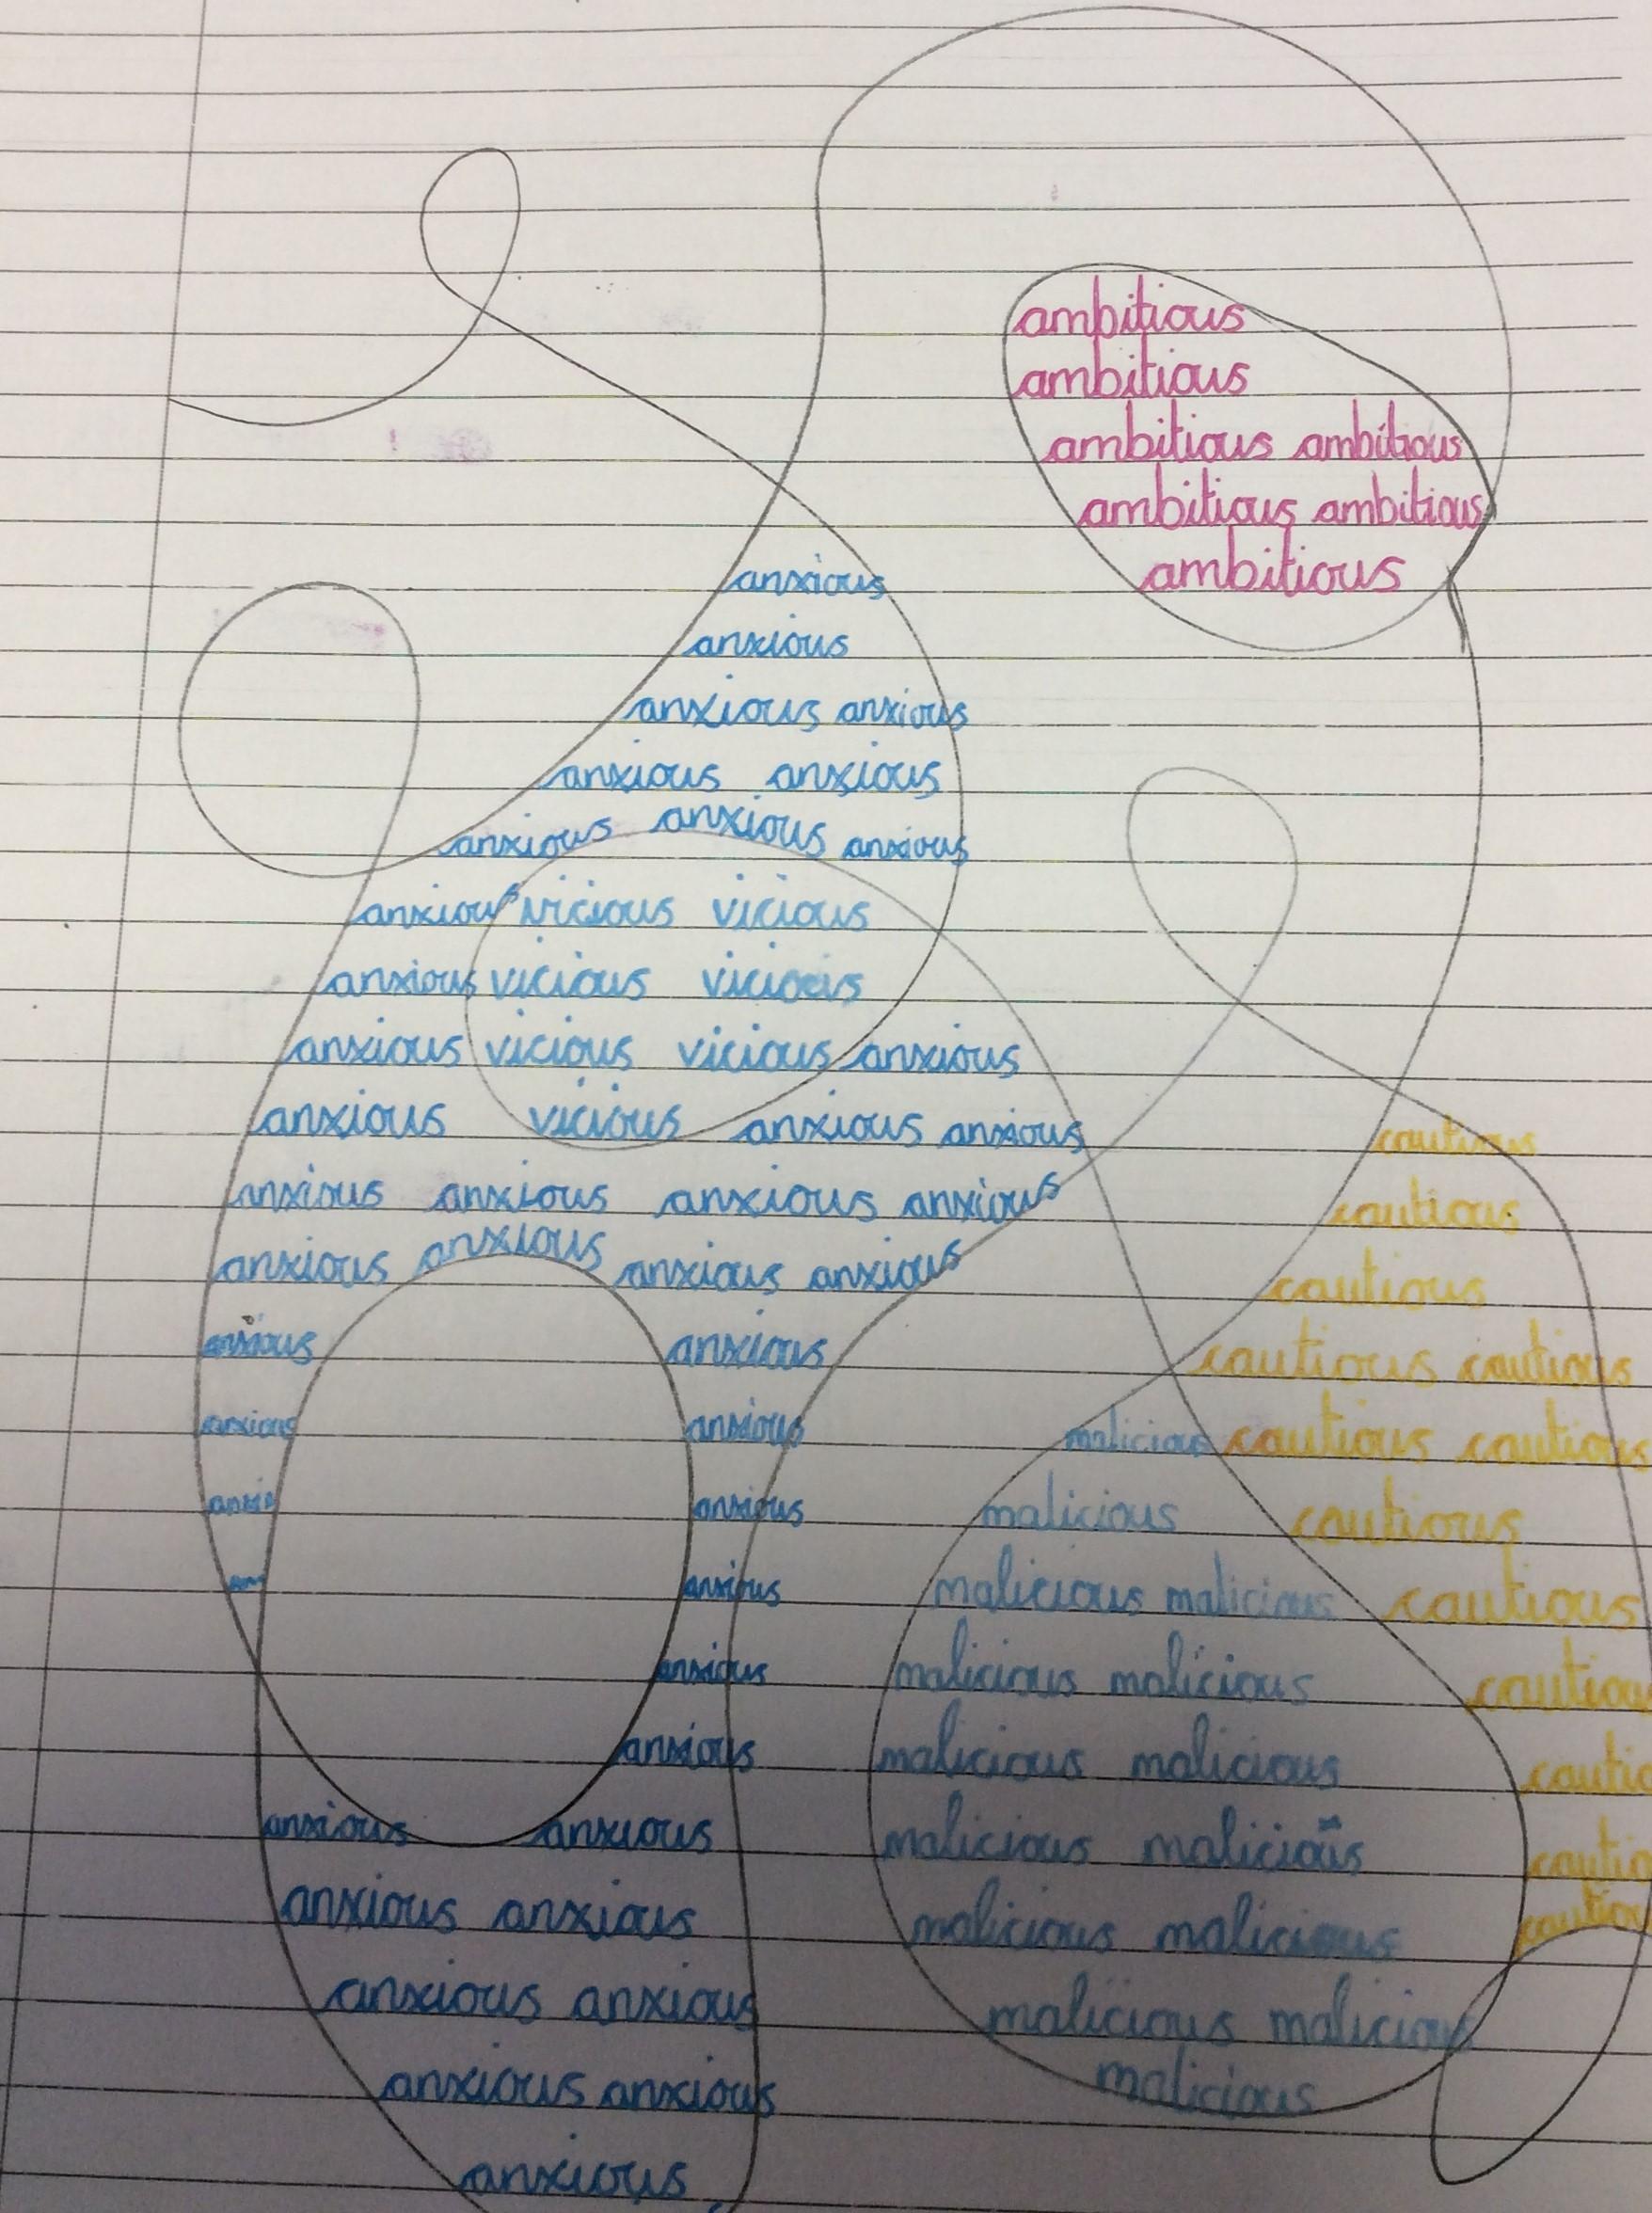 ambitious
ambitious
ambitious ambitious
ambitious ambitious
ambitious
anxious
anxious
anxious anxious
anxious anxious
anxious anxious anxious
anxious vicious vicious
anxious vicious vicious
anxious vicious vicious anxious
anxious vicious anxious anxious cautious
anxious anxious anxious anxious cautious
anxious anxious anxious anxious cautious
anxious anxious cautious cautious
anxious anxious malicious cautious cautious
anxio anxious malicious cautious
anxious malicious malicious cautious
anxious malicious malicious cautiou
anxious malicious malicious cautio
anxious anxious malicious malicious cautio
anxious anxious malicious malicious cautiou
anxious anxious malicious malicious
anxious anxious malicious
anxious